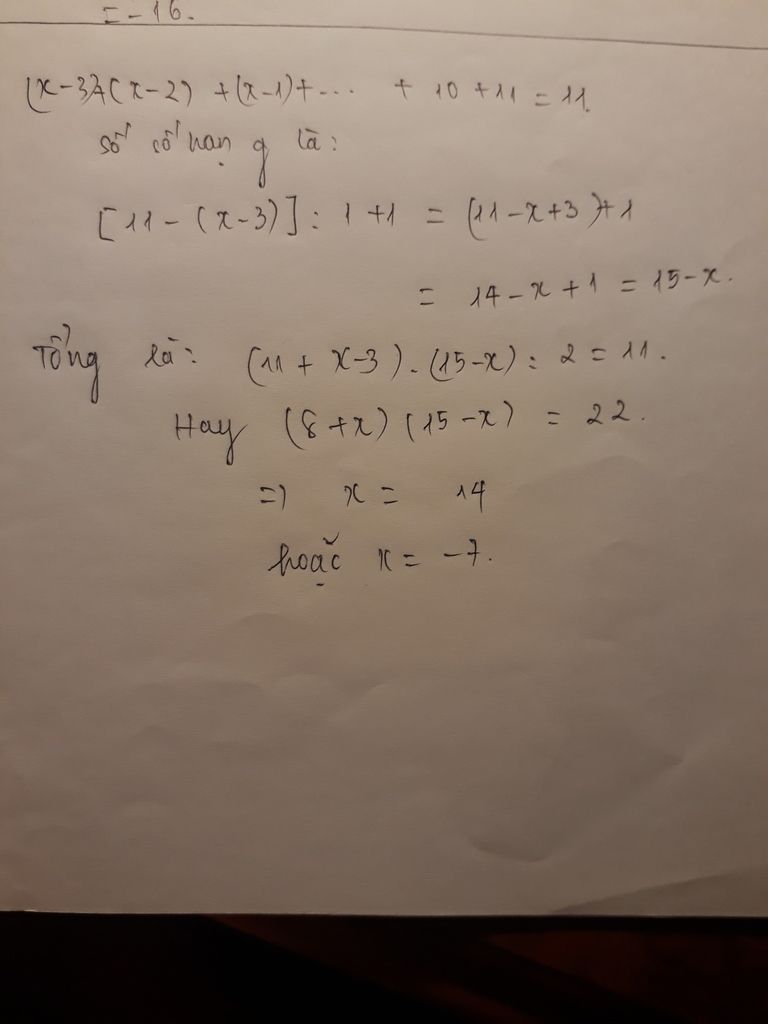 = -16.
(x-3)+(x-2) + (x-1)+ ... + 10 + 11 = 11.
Số số hạng là:
[11 - (x-3)] : 1 + 1 = (11-x+3)+1
= 14 - x + 1 = 15 - x.
Tổng là: (11 + x-3) . (15-x) : 2 = 11.
Hay (8+x) (15-x) = 22.
=> x = 14
hoặc x = -7.